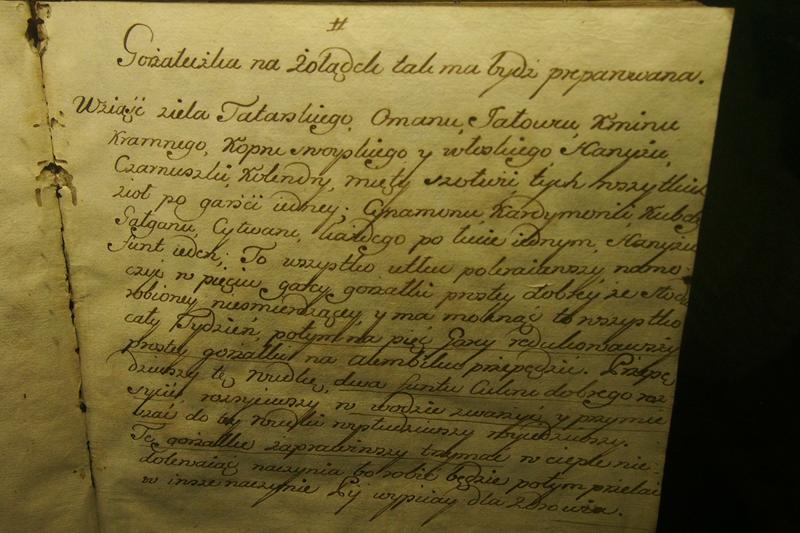 #
Gorzałuszka na Żołądek tak ma bydź preparowana.
Wziąść ziela Tatarskiego, Omanu, Jałowcu, Kminu
Kramnego, Kopru swoyskiego y włoskiego Hanyżu,
Czarnuszki, Kolendry, mięty szołwii tych wszystkich
ziół po garści iedney; Cynamonu, Kardymonii, Kubeb
Galganu, Cytwaru, każdego po łucie iednym, Hanyżu
funt ieden; To wszystko utłuc pokraiawszy, namo-
czyć w pięciu garcy gorzałki prostey dobrey ze słodu
robioney nieśmierdzącey, y ma moknąć to wszystko
cały Tydzień, potym na pięć Garcy
prostey gorzałki na alembiku przepędzić. Przepę
dziwszy tę wudkę, dwa funtu Cukru dobrego roz
syćić, rozpuściwszy w wodzie y
do tey wudki wystudziwszy
Tę gorzałkę zaprawiwszy trzymać w cieple nie
dolewaiąc naczynia bo robić będzie potym przelać
w insze naczynie Pij wypiiay dla Zdrowia.